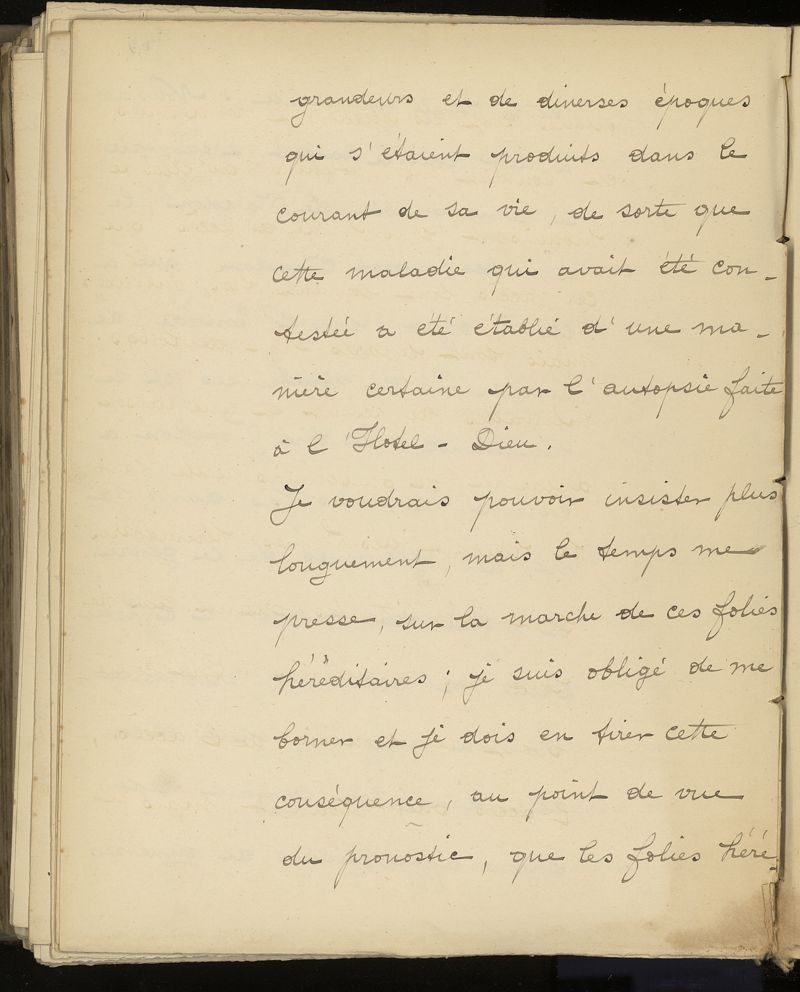 grandeurs et de diverses époques
qui s'étaient produits dans le
courant de sa vie, de sorte que
cette maladie qui avait été con-
testée a été établie d'une ma-
nière certaine par l'autopsie faite
à l'Hotel-Dieu.
Je voudrais pouvoir insister plus
longuement, mais le temps me
presse, sur la marche de ces folies
héréditaires; je suis obligé de me
borner et je dois en tirer cette
conséquence, au point de vue
du pronostic, que les folies héré-